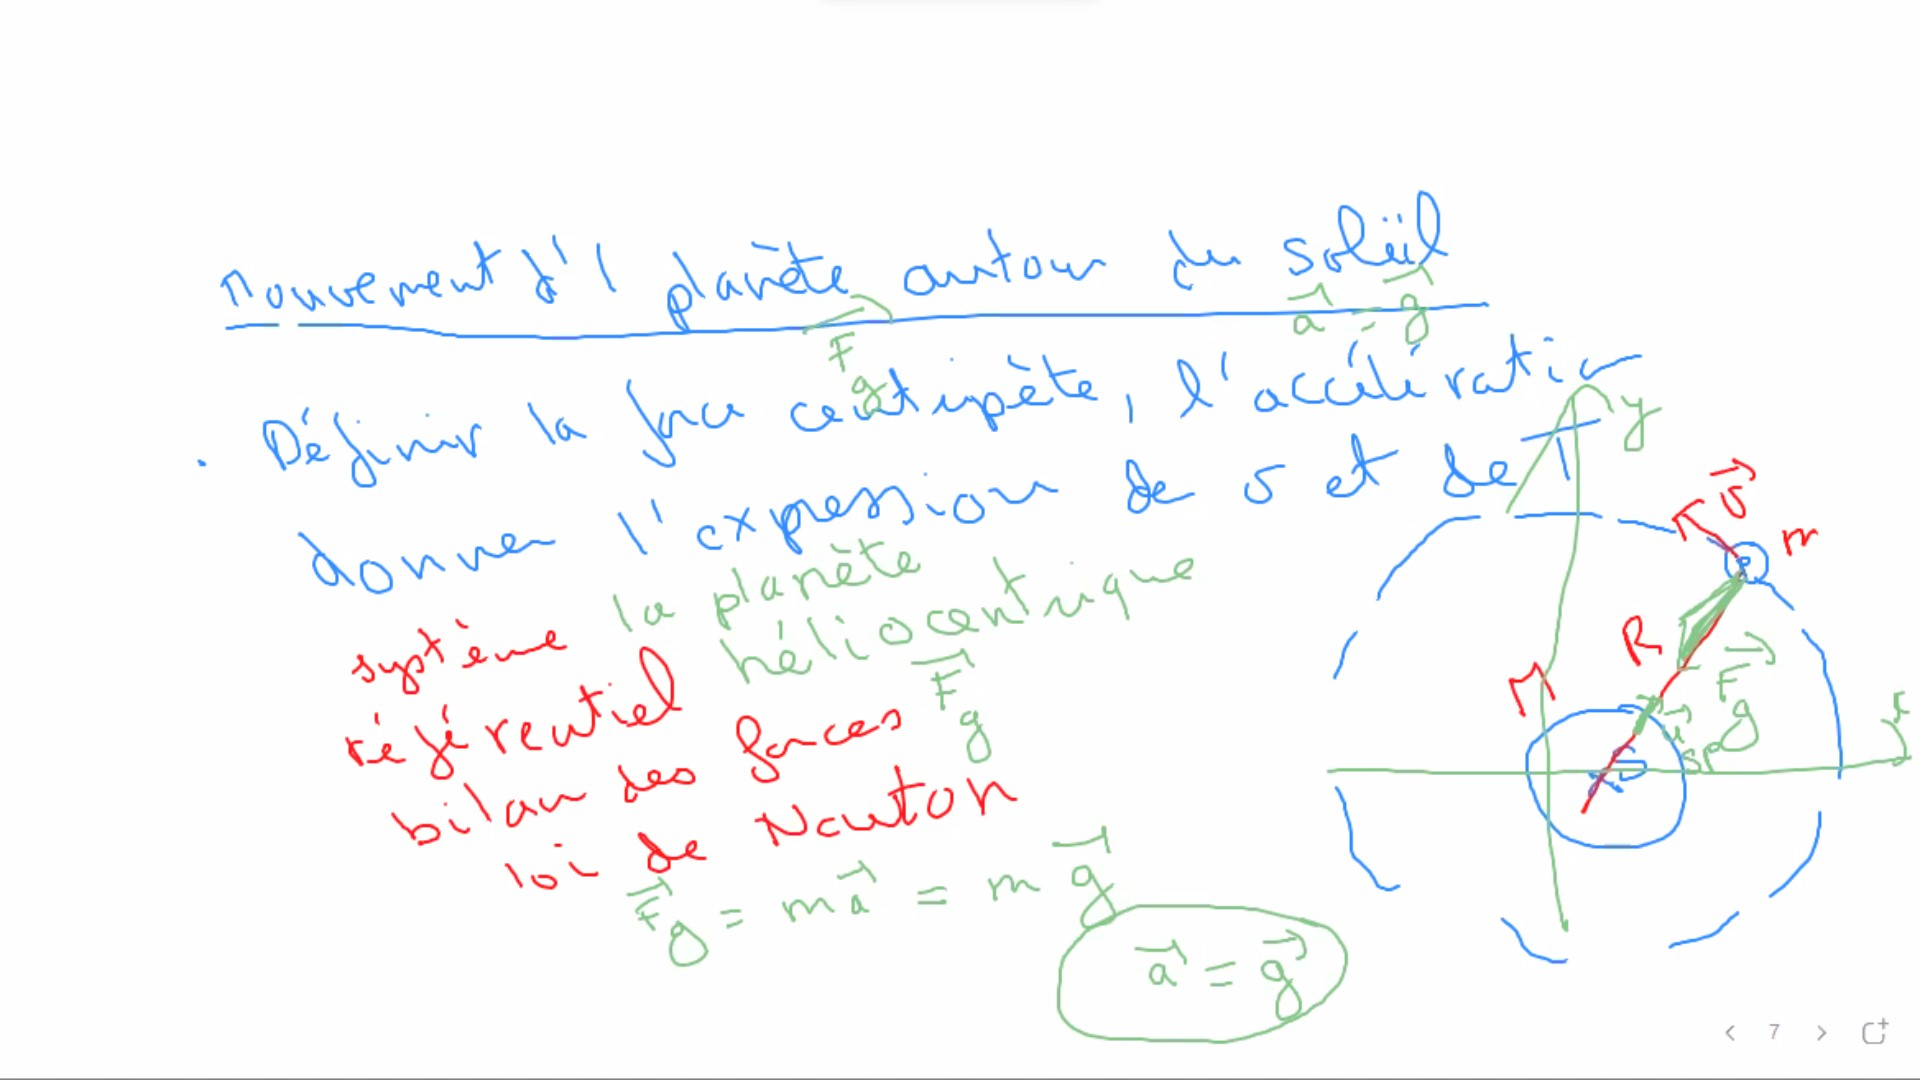 Mouvement d'1 planète autour du soleïl
F g
a = g
. Définir la force centripète, l'accélératio
donner l'expression de v et de T
système la planète
référentiel héliocentrique
bilan des forces F g
loi de Newton
F g = m a = m g
a = g
y
v
m
P
R
F g
M
u SP
7